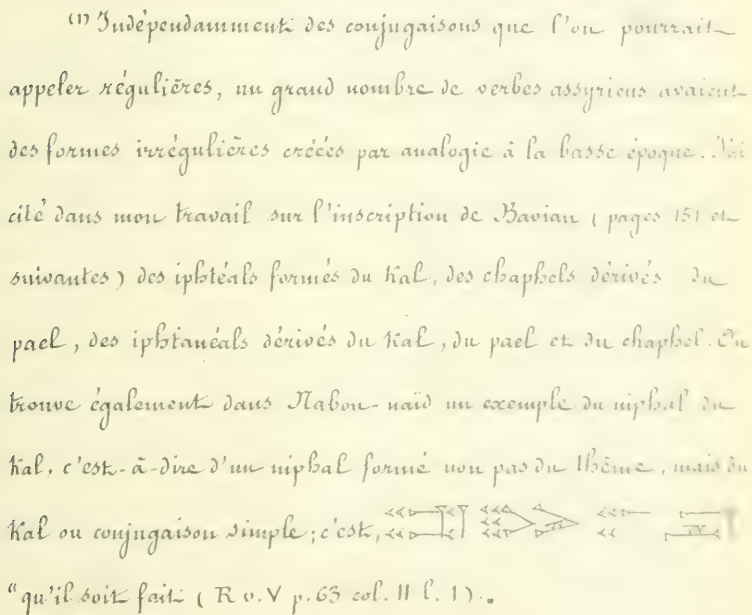 (1) Indépendamment des conjugaisons que l'on pourrait
appeler régulières, un grand nombre de verbes assyriens avaient
des formes irrégulières créées par analogie à la basse époque. J'ai
cité dans mon travail sur l'inscription de Bavian (pages 151 et
suivantes) des iphtéals formés du Kal, des chaphels dérivés du
pael, des iphtanéals dérivés du Kal, du pael et du chaphel. On
trouve également dans Nabou-naïd un exemple du niphal du
Kal, c'est-à-dire d'un niphal formé non pas du thème, mais du
Kal ou conjugaison simple; c'est,
"qu'il soit fait (R v. V p. 63 col. II l. 1).